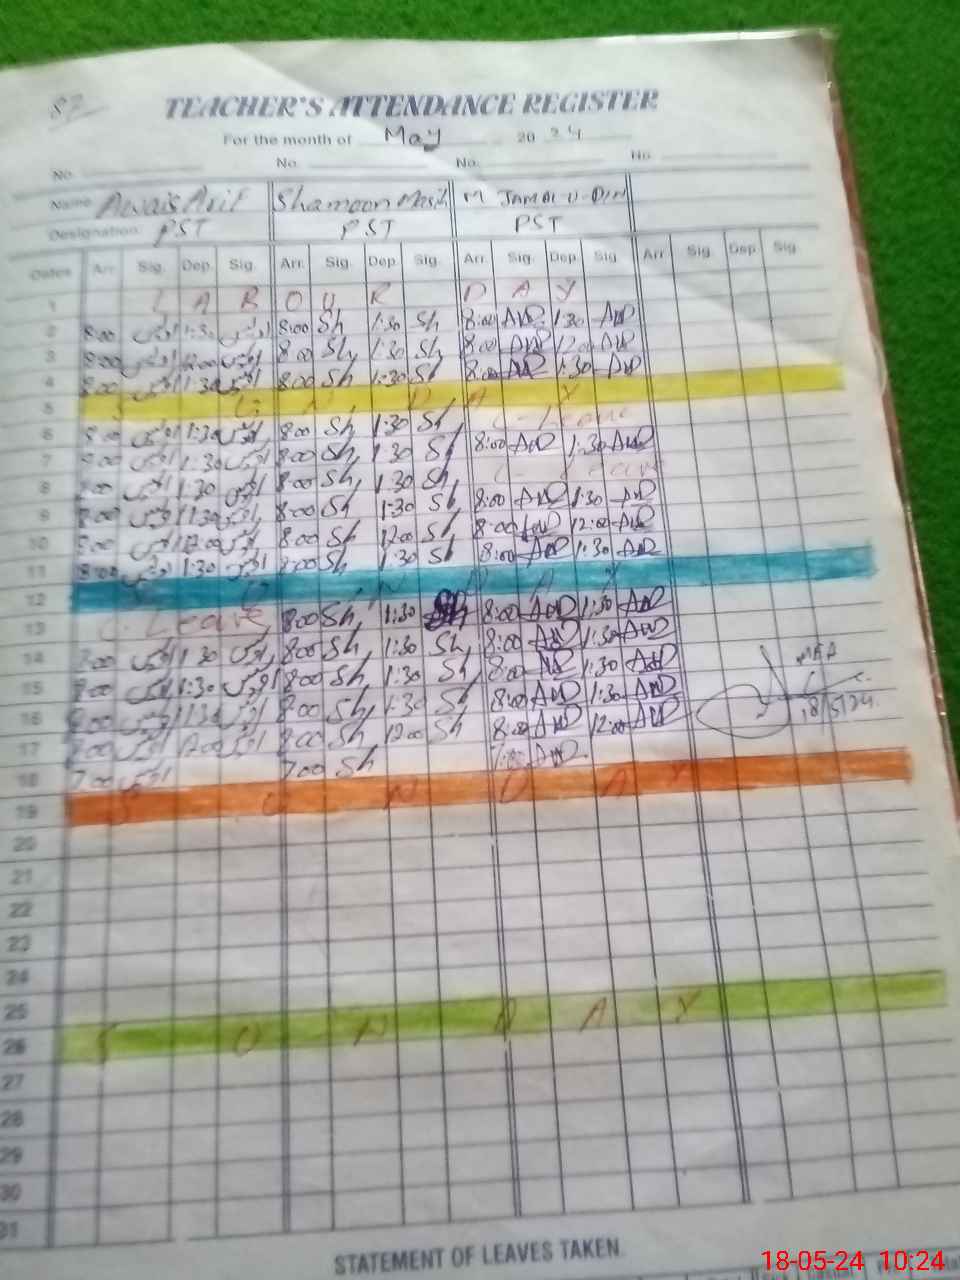 87
TEACHER'S ATTENDANCE REGISTER
For the month of May 2024
No. No. No. No.
Name Awais Arif Shamoon Masih M JAMAL-U-DIN
Designation PST PST PST
Dates Arr. Sig. Dep. Sig. Arr. Sig. Dep. Sig. Arr. Sig. Dep. Sig. Arr. Sig. Dep Sig.
1 L A B O U R D A Y
2 8:00 اویس 1:30 اویس 8:00 Sh 1:30 Sh 8:00 AWD 1:30 AWD
3 8:00 اویس 12:00 اویس 8:00 Sh 1:30 Sh 8:00 AWD 12:00 AWD
4 8:00 اویس 1:30 اویس 8:00 Sh 1:30 Sh 8:00 AWD 1:30 AWD
5 S U N D A Y
6 8:00 اویس 1:30 اویس 8:00 Sh 1:30 Sh C-Leave
7 8:00 اویس 1:30 اویس 8:00 Sh 1:30 Sh 8:00 AWD 1:30 AWD
8 8:00 اویس 1:30 اویس 8:00 Sh 1:30 Sh C-Leave
9 8:00 اویس 1:30 اویس 8:00 Sh 1:30 Sh 8:00 AWD 1:30 AWD
10 8:00 اویس 12:00 اویس 8:00 Sh 12:00 Sh 8:00 AWD 12:00 AWD
11 8:00 اویس 1:30 اویس 8:00 Sh 1:30 Sh 8:00 AWD 1:30 AWD
12 S U N D A Y
13 C-Leave 8:00 Sh 1:30 Sh 8:00 AWD 1:30 AWD
14 8:00 اویس 1:30 اویس 8:00 Sh 1:30 Sh 8:00 AWD 1:30 AWD
15 8:00 اویس 1:30 اویس 8:00 Sh 1:30 Sh 8:00 AWD 1:30 AWD
16 8:00 اویس 1:30 اویس 8:00 Sh 1:30 Sh 8:00 AWD 1:30 AWD
17 8:00 اویس 12:00 اویس 8:00 Sh 12:00 Sh 8:00 AWD 12:00 AWD
18 7:00 اویس 7:00 Sh 7:00 AWD
MEA
18/5/24.
19 S U N D A Y
20
21
22
23
24
25
26 S U N D A Y
27
28
29
30
31
STATEMENT OF LEAVES TAKEN
18-05-24 10:24